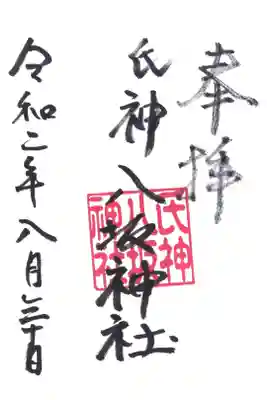 奉拝
氏神 八坂神社
氏神
八坂
神社
令和二年八月三十日